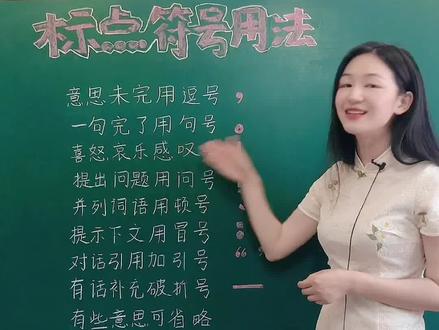 标点符号用法
意思未完用逗号 ，
一句完了用句号 。
喜怒哀乐感叹
提出问题用问号
并列词语用顿号
提示下文用冒号
对话引用加引号 “
有话补充破折号 —
有些意思可省略